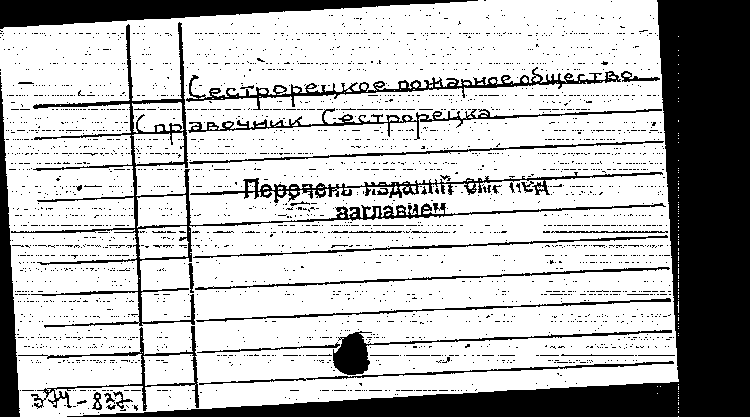 Сестрорецкое пожарное общество.
Справочник Сестрорецка.
Перечень изданий см. под
заглавием
374-837.